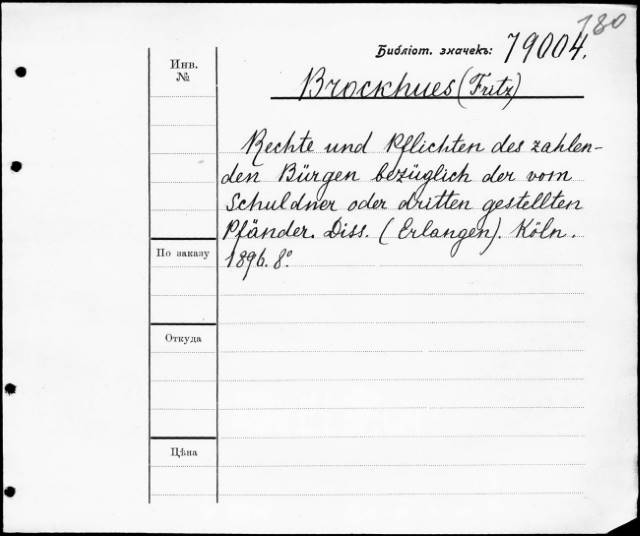 180
Библіот. значекъ: 79004.
Инв.
№
Brockhues (Fritz)
Rechte und Pflichten des zahlen-
den Bürgen bezüglich der vom
Schuldner oder dritten gestellten
Pfänder. Diss. (Erlangen). Köln.
1896. 8°.
По заказу
Откуда
Цѣна